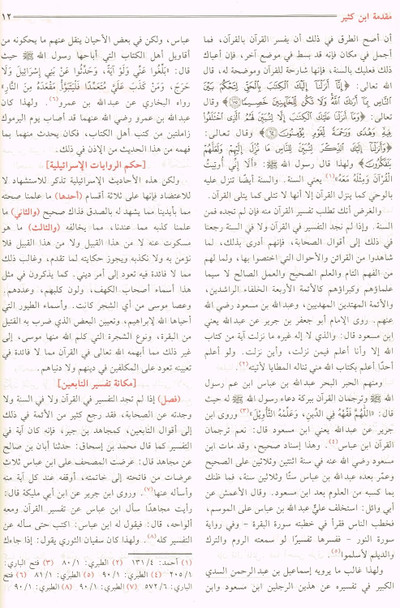 مقدمة ابن كثير
١٢
أن أصح الطرق في ذلك أن يفسر القرآن بالقرآن، فما
أجمل في مكان فإنه قد بسط في موضع آخر، فإن أعياك
ذلك فعليك بالسنة، فإنها شارحة للقرآن وموضحة له، قال
تعالى: ﴿إِنَّا أَنزَلْنَا إِلَيْكَ الْكِتَابَ بِالْحَقِّ لِتَحْكُمَ بَيْنَ
النَّاسِ بِمَا أَرَاكَ اللَّهُ وَلَا تَكُن لِّلْخَائِنِينَ خَصِيمًا﴾ وقال
تعالى: ﴿وَمَا أَنزَلْنَا عَلَيْكَ الْكِتَابَ إِلَّا لِتُبَيِّنَ لَهُمُ الَّذِي اخْتَلَفُوا
فِيهِ وَهُدًى وَرَحْمَةً لِّقَوْمٍ يُؤْمِنُونَ﴾ وقال تعالى:
﴿وَأَنزَلْنَا إِلَيْكَ الذِّكْرَ لِتُبَيِّنَ لِلنَّاسِ مَا نُزِّلَ إِلَيْهِمْ وَلَعَلَّهُمْ
يَتَفَكَّرُونَ﴾ ولهذا قال رسول الله ﷺ: «أَلَا إِنِّي أُوتِيتُ
الْقُرْآنَ وَمِثْلَهُ مَعَهُ»(١) يعني السنة. والسنة أيضًا تنزل عليه
بالوحي كما ينزل القرآن إلا أنها لا تتلى كما يتلى القرآن.
والغرض أنك تطلب تفسير القرآن منه فإن لم تجده فمن
السنة. وإذا لم نجد التفسير في القرآن ولا في السنة رجعنا
في ذلك إلى أقوال الصحابة، فإنهم أدرى بذلك، لما
شاهدوا من القرائن والأحوال التي اختصوا بها، ولما لهم
من الفهم التام والعلم الصحيح والعمل الصالح لا سيما
علماؤهم وكبراؤهم كالأئمة الأربعة الخلفاء الراشدين،
والأئمة المهتدين المهديين، وعبدالله بن مسعود رضي الله
عنهم. روى الإمام أبو جعفر بن جرير عن عبدالله يعني
ابن مسعود قال: والذي لا إله غيره ما نزلت آية من كتاب
الله إلا وأنا أعلم فيمن نزلت، وأين نزلت. ولو أعلم
أحدًا أعلم بكتاب الله مني تناله المطايا لأتيته(٢).
ومنهم الحبر البحر عبدالله بن عباس ابن عم رسول
الله ﷺ وترجمان القرآن ببركة دعاء رسول الله ﷺ له حيث
قال: «اللَّهُمَّ فَقِّهْهُ فِي الدِّينِ، وَعَلِّمْهُ التَّأْوِيلَ»(٣) وروى ابن
جرير عن عبدالله يعني ابن مسعود قال: نعم ترجمان
القرآن ابن عباس(٤). وهذا إسناد صحيح، وقد مات ابن
مسعود رضي الله عنه في سنة اثنتين وثلاثين على الصحيح
وعمّر بعده عبدالله بن عباس ستًّا وثلاثين سنة، فما ظنك
بما كسبه من العلوم بعد ابن مسعود. وقال الأعمش عن
أبي وائل: استخلف عليٌّ عبدالله بن عباس على الموسم،
فخطب الناس فقرأ في خطبته سورة البقرة - وفي رواية
سورة النور - ففسرها تفسيرًا لو سمعته الروم والترك
والديلم لأسلموا(٥).
ولهذا غالب ما يرويه إسماعيل بن عبد الرحمن السدي
الكبير في تفسيره عن هذين الرجلين ابن مسعود وابن
عباس، ولكن في بعض الأحيان ينقل عنهم ما يحكونه من
أقاويل أهل الكتاب التي أباحها رسول الله ﷺ حيث
قال: «بَلِّغُوا عَنِّي وَلَوْ آيَةً، وَحَدِّثُوا عَنْ بَنِي إِسْرَائِيلَ وَلَا
حَرَجَ، وَمَنْ كَذَبَ عَلَيَّ مُتَعَمِّدًا فَلْيَتَبَوَّأْ مَقْعَدَهُ مِنَ النَّارِ»
رواه البخاري عن عبدالله بن عمرو(٦). ولهذا كان
عبدالله بن عمرو رضي الله عنهما قد أصاب يوم اليرموك
زاملتين من كتب أهل الكتاب، فكان يحدث منهما بما
فهمه من هذا الحديث من الإذن في ذلك.
[حكم الروايات الإسرائيلية]
ولكن هذه الأحاديث الإسرائيلية تذكر للاستشهاد لا
للاعتضاد فإنها على ثلاثة أقسام (أحدها) ما علمنا صحته
مما بأيدينا مما يشهد له بالصدق فذاك صحيح (والثاني) ما
علمنا كذبه مما عندنا، مما يخالفه (والثالث) ما هو
مسكوت عنه لا من هذا القبيل ولا من هذا القبيل فلا
نؤمن به ولا نكذبه ويجوز حكايته لما تقدم، وغالب ذلك
مما لا فائدة فيه تعود إلى أمر ديني. كما يذكرون في مثل
هذا أسماء أصحاب الكهف، ولون كلبهم، وعددهم.
وعصا موسى من أي الشجر كانت. وأسماء الطيور التي
أحياها الله لإبراهيم، وتعيين البعض الذي ضرب به القتيل
من البقرة، ونوع الشجرة التي كلم الله منها موسى، إلى
غير ذلك مما أبهمه الله تعالى في القرآن مما لا فائدة في
تعيينه تعود على المكلفين في دينهم ولا دنياهم.
[مكانة تفسير التابعين]
(فصل) إذا لم تجد التفسير في القرآن ولا في السنة ولا
وجدته عن الصحابة، فقد رجع كثير من الأئمة في ذلك
إلى أقوال التابعين، كمجاهد بن جبر، فإنه كان آية في
التفسير كما قال محمد بن إسحاق: حدثنا أبان بن صالح
عن مجاهد قال: عرضت المصحف على ابن عباس ثلاث
عرضات من فاتحته إلى خاتمته، أوقفه عند كل آية منه
وأسأله عنها(٧). وروى ابن جرير عن ابن أبي مليكة قال:
رأيت مجاهدًا سأل ابن عباس عن تفسير القرآن ومعه
ألواحه، قال: فيقول له ابن عباس: اكتب حتى سأله عن
التفسير كله(٨). ولهذا كان سفيان الثوري يقول: إذا جاءك
(١) أحمد: ١٣١/٤ (٢) الطبري: ٨٠/١ (٣) فتح الباري:
٢٠٥/١ (٤) الطبري: ٩٠/١ (٥) الطبري: ٨١/١ (٦) فتح
الباري: ٥٧٢/٦ (٧) الطبري: ٩٠/١ (٨) الطبري: ٩٠/١